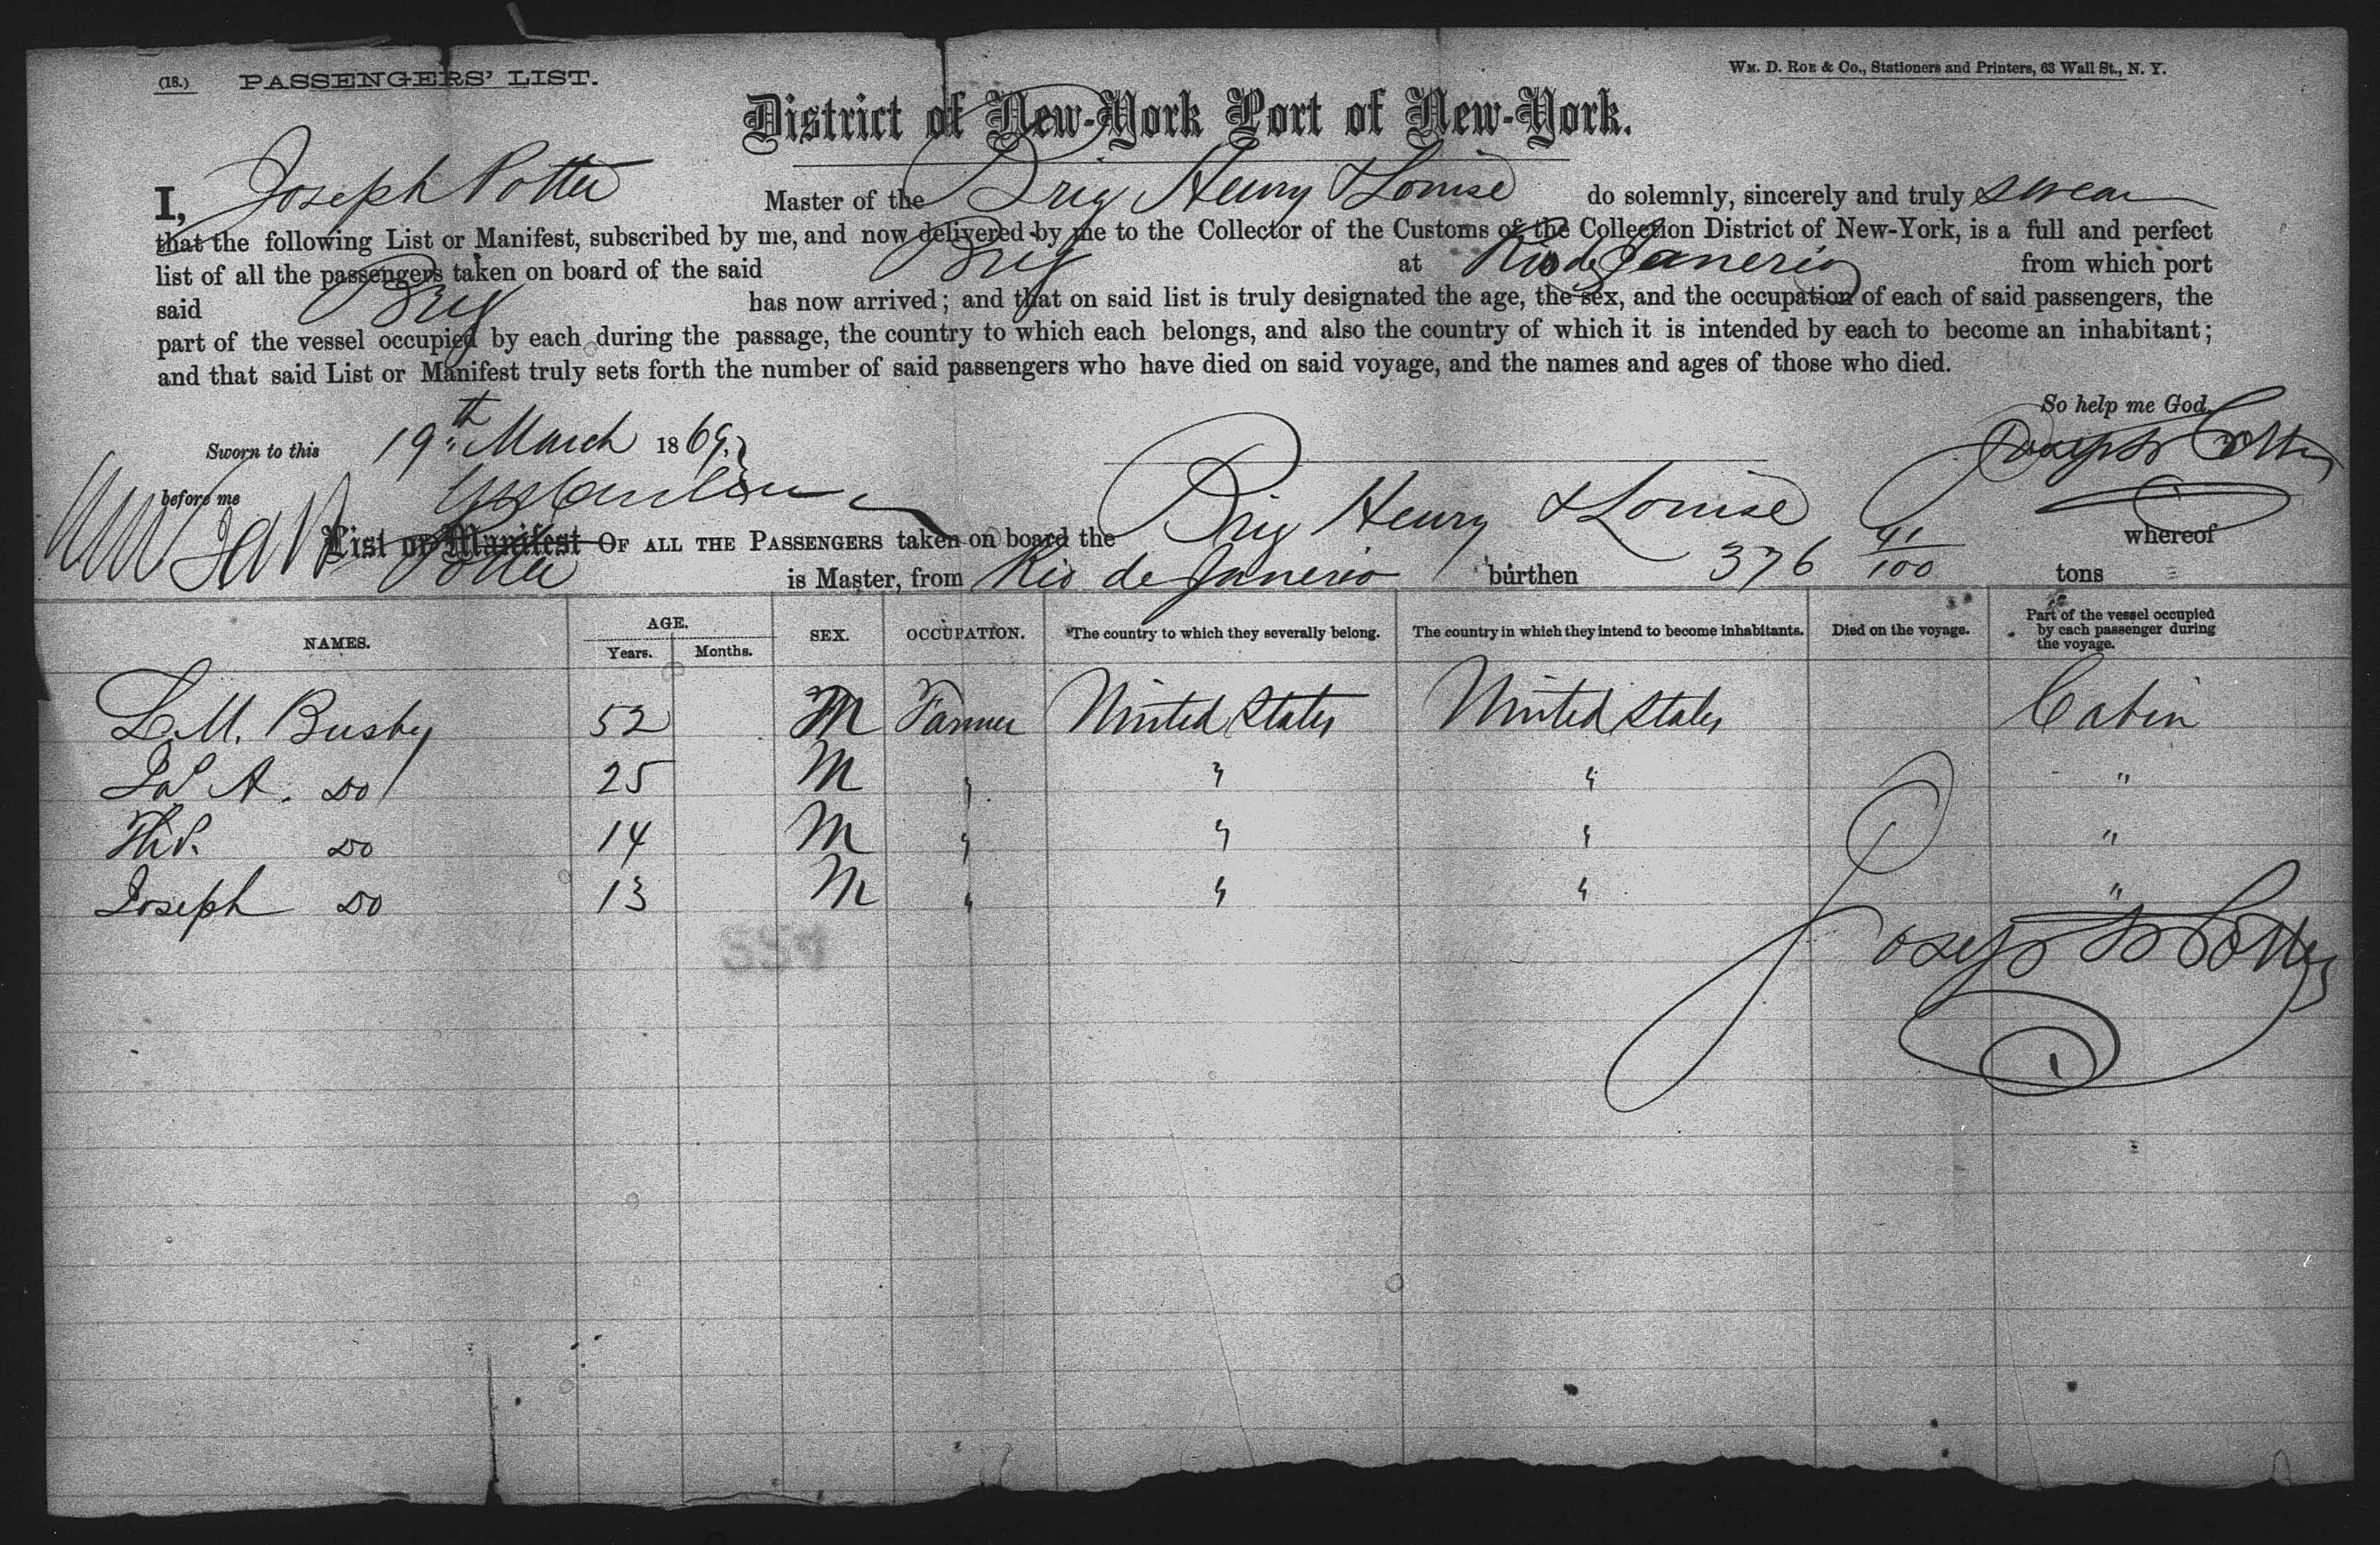 (18.) PASSENGERS' LIST.
WM. D. ROE & Co., Stationers and Printers, 63 Wall St., N. Y.
District of New-York Port of New-York.
I, Joseph Potter Master of the Brig Henry & Louise do solemnly, sincerely and truly swear
that the following List or Manifest, subscribed by me, and now delivered by me to the Collector of the Customs of the Collection District of New-York, is a full and perfect
list of all the passengers taken on board of the said Brig at Rio de Janerio from which port
said Brig has now arrived; and that on said list is truly designated the age, the sex, and the occupation of each of said passengers, the
part of the vessel occupied by each during the passage, the country to which each belongs, and also the country of which it is intended by each to become an inhabitant;
and that said List or Manifest truly sets forth the number of said passengers who have died on said voyage, and the names and ages of those who died.
So help me God.
Sworn to this 19th March 1869. Joseph Potter
before me
List or Manifest OF ALL THE PASSENGERS taken on board the Brig Henry & Louise whereof
Potter is Master, from Rio de Janerio burthen 376 41/100 tons
NAMES. AGE. Years. Months. SEX. OCCUPATION. The country to which they severally belong. The country in which they intend to become inhabitants. Died on the voyage. Part of the vessel occupied by each passenger during the voyage.
L. M. Busby 52 M Farmer United States United States Cabin
A. Do 25 M " " " "
Do 14 M " " " "
Joseph Do 13 M " " " "
Joseph Potter